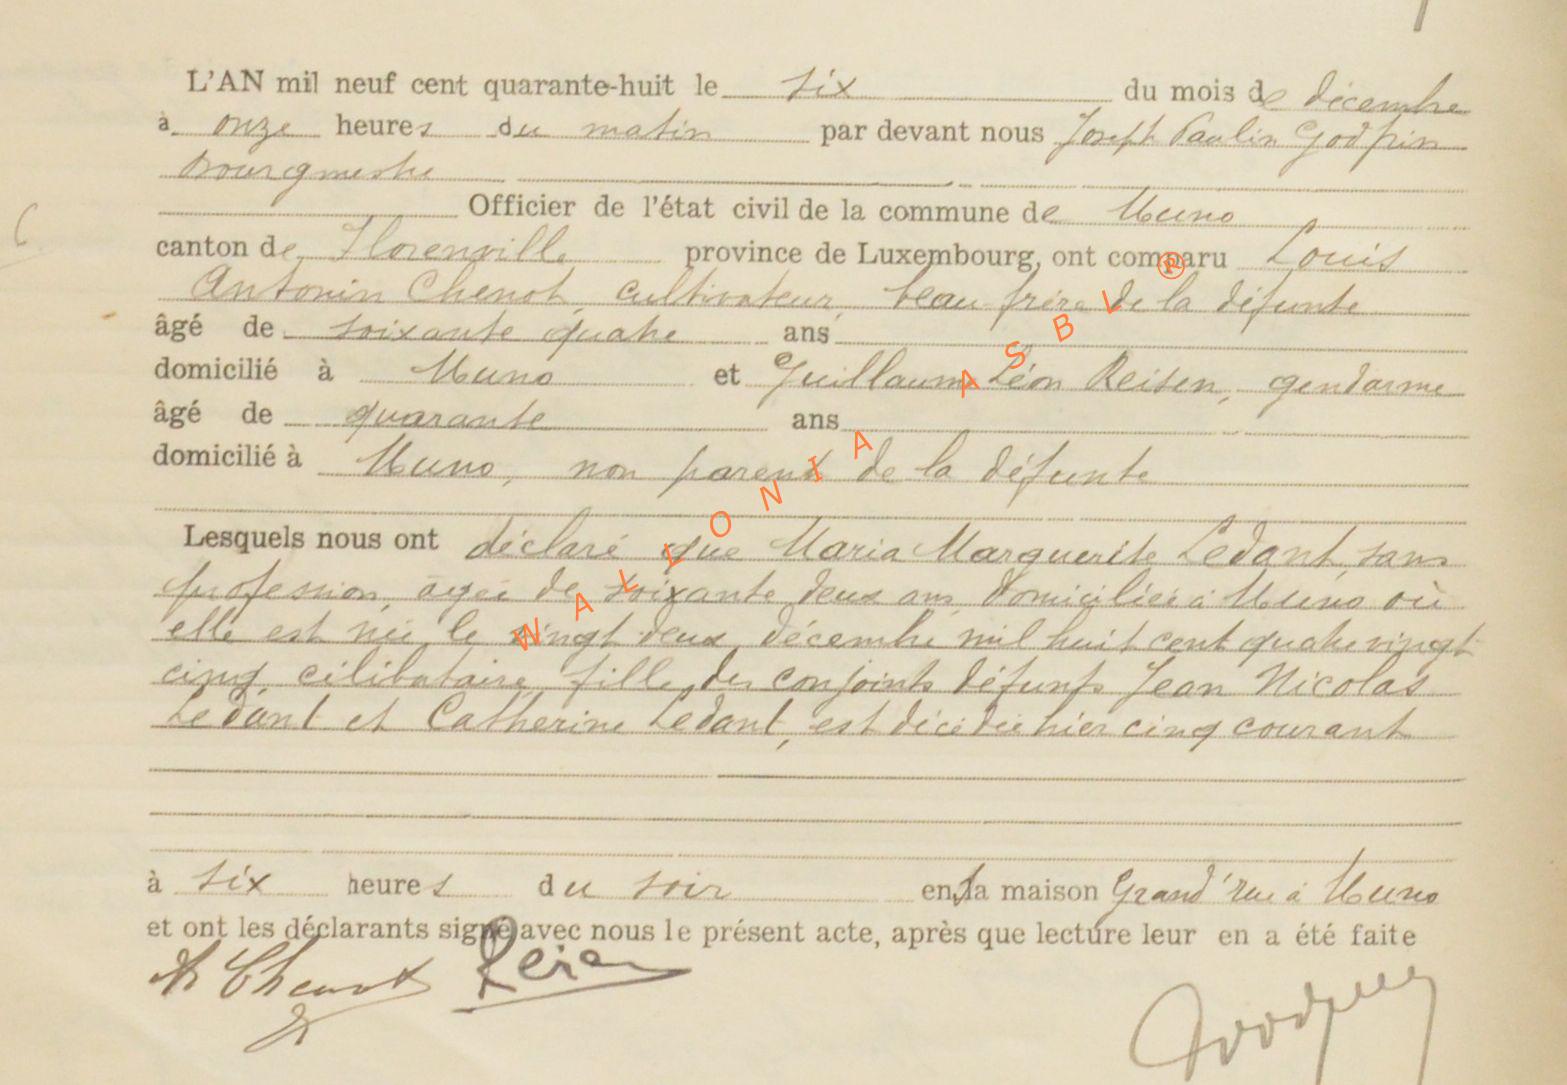 L'AN mil neuf cent quarante-huit le six du mois de décembre
à onze heures du matin par devant nous Joseph Paulin Godfrin
bourgmestre
Officier de l'état civil de la commune de Muno
canton de Florenville province de Luxembourg, ont comparu Louis
Antonin Chenot, cultivateur, beau-frère de la défunte
âgé de soixante quatre ans
domicilié à Muno et Guillaume Léon Reisen, gendarme
âgé de quarante ans
domicilié à Muno, non parent de la défunte
Lesquels nous ont déclaré que Maria Marguerite Ledant, sans
profession, âgée de soixante deux ans, domiciliée à Muno où
elle est née le vingt deux décembre mil huit cent quatre vingt
cinq, célibataire, fille des conjoints défunts Jean Nicolas
Ledant et Catherine Ledant, est décédée hier cinq courant
à six heures du soir en sa maison Grand'rue à Muno
et ont les déclarants signé avec nous le présent acte, après que lecture leur en a été faite
Chenot
WALLONIA ASBL ®